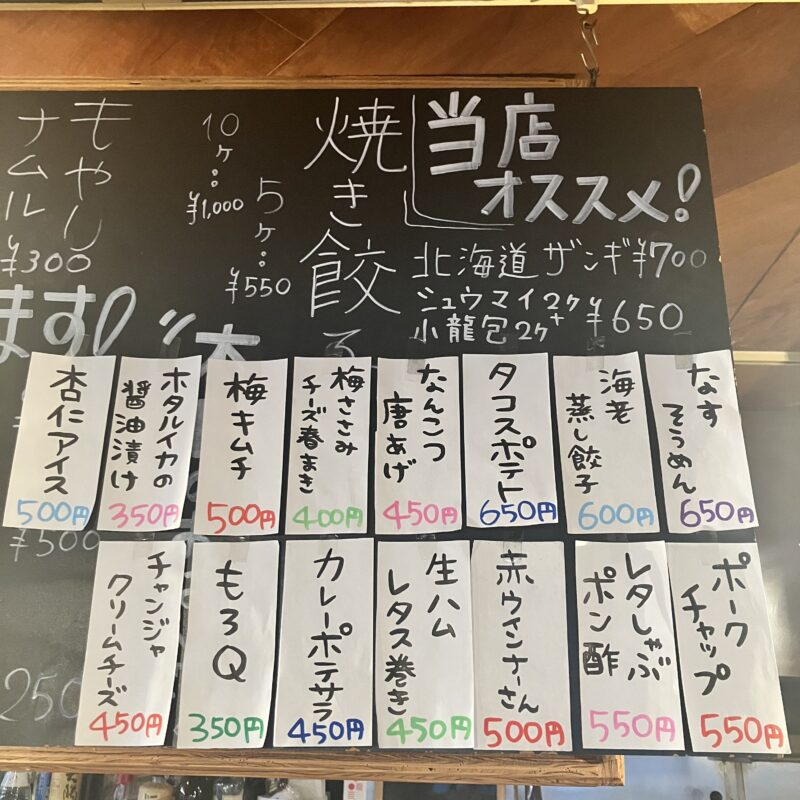 当店
オススメ!
北海道ザンギ¥700
シュウマイ2ケ+
小龍包2ケ
¥650
焼き餃子
5ケ:¥550
10ケ:¥1,000
もやし
ナムル
¥300
ます!
なす
そうめん
650円
海老
蒸し餃子
600円
タコスポテト
650円
なんこつ
唐あげ
450円
梅ささみ
チーズ春まき
400円
梅キムチ
500円
ホタルイカの
醤油漬け
350円
杏仁アイス
500円
¥500
ポーク
チャップ
550円
レタしゃぶ
ポン酢
550円
赤ウインナーさん
500円
生ハム
レタス巻き
450円
カレーポテサラ
450円
もろQ
350円
チャンジャ
クリームチーズ
450円
250